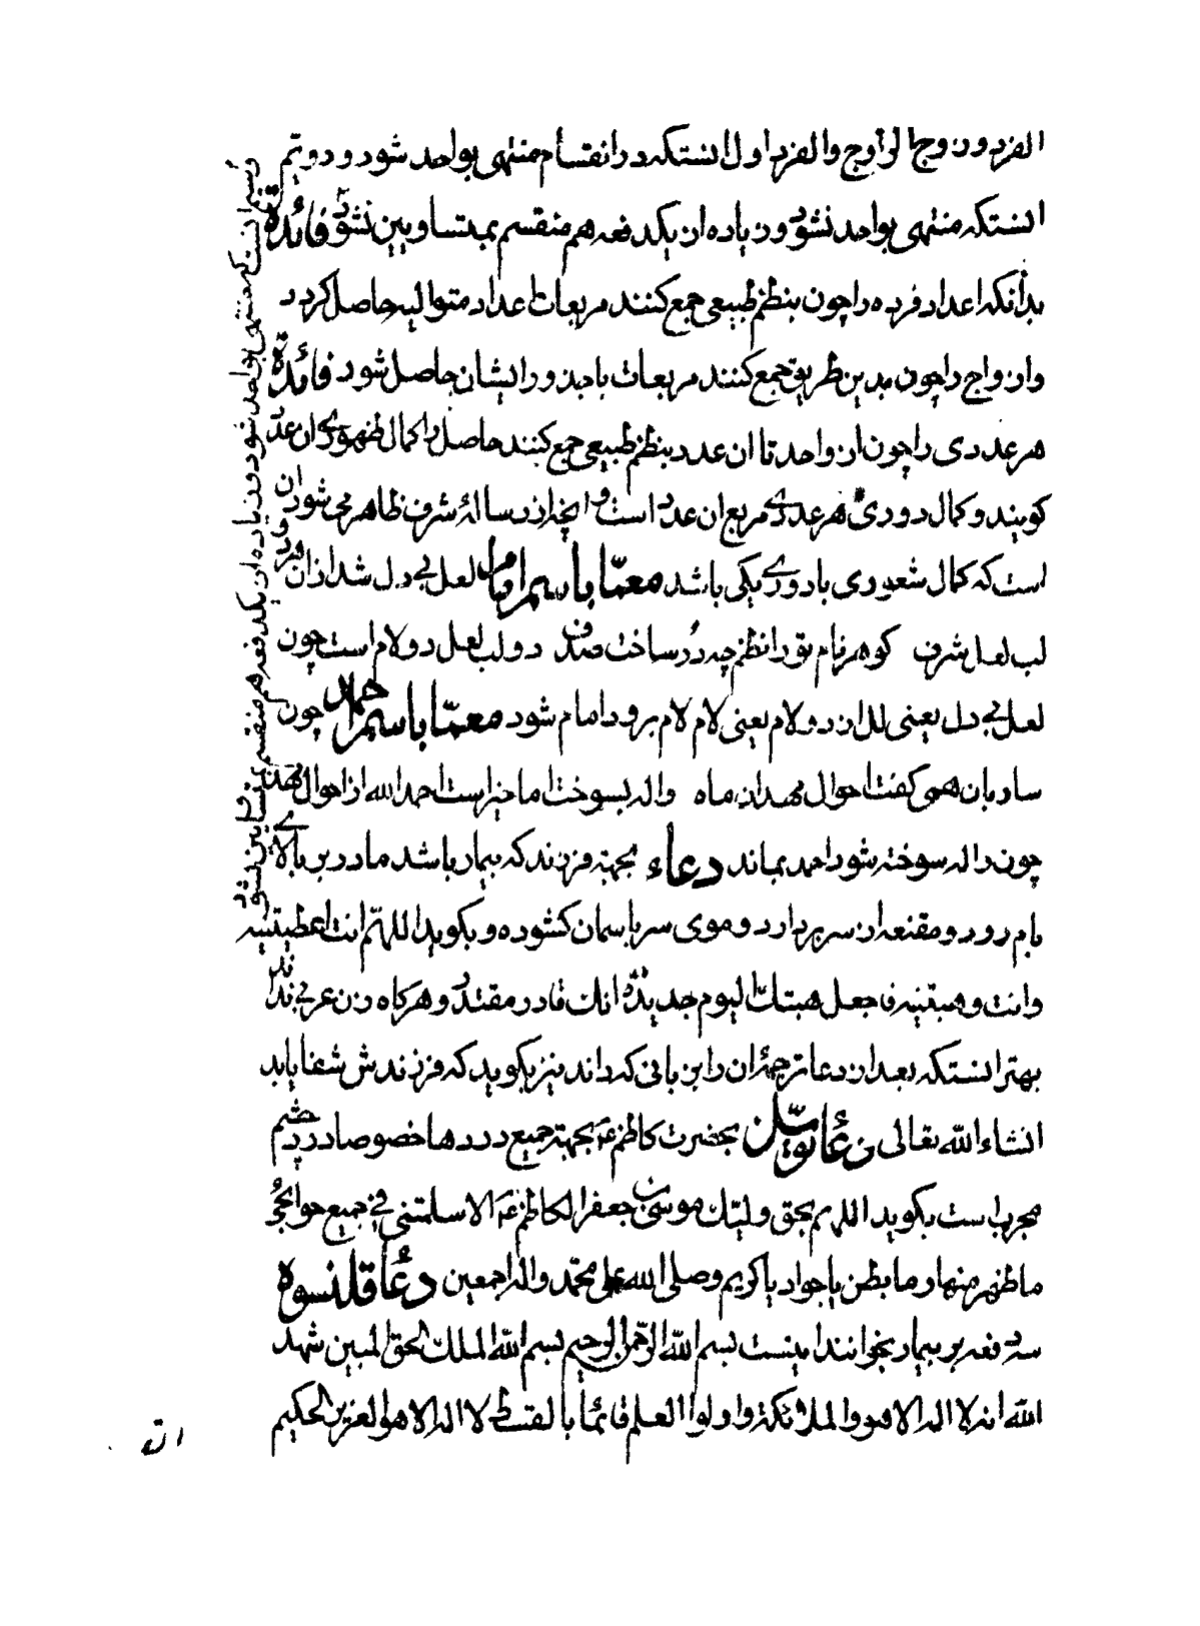 الفرد و زوج الزوج و الفرد اول انستکه در انقسام منتهی بواحد شود و دویّم
انستکه منتهی بواحد نشود و زیاده از یکدفعه هم منقسم بمتساویین نشود فائدة
بدانکه اعداد فرده را چون بنظم طبیعی جمع کنند مربعات اعداد متوالیه حاصل کردد
و ازواج را چون بدین طریق جمع کنند مربعات با جذور ایشان حاصل شود فائدة
هر عددی را چون از واحد تا ان عدد بنظم طبیعی جمع کنند حاصل را کمال ظهوری ان عدد
کویند و کمال دوری هر عددی مربع ان عدد است و انچه از رسالۀ شرف ظاهر می شود ان
است که کمال شعوری با دوری یکی باشد معمّا باسم امام لعل بی دل شد ازان
لب لعل شرف کوهر نام تو را نظم چه دُر ساخت صدف دو لب لعل دو لام است چون
لعل بی دل یعنی لل از دو لام یعنی لام لام برود امام شود معمّا باسم احمد چون
ساربان همی کفت احوال مهد ان ماه واله بسوخت اما خیر است احمد الله از احوال مهد
چون را اله سوخته شود احمد بماند دعاء بجهة فرزند که بیمار باشد مادر بر بالای
بام رود و مقنعه از سر بردارد و موی سر باسمان کشوده و بکوید اللهمّ انت اعطیتنیه
و انت وهبتنیه فاجعل هبتك الیوم جدیدة انك قادر مقتدر و هرکاه زن عربی نداند
بهتر انستکه بعد از دعا ترجمۀ ان را بزبانی که داند نیز بکوید که فرزندش شفا یابد
انشاء الله تعالی دعا توسّل بحضرت کاظم ع بجهة جمیع دردها خصوصا درد چشم
مجرب است بکوید اللهم بحق ولیّك موسی بن جعفر الکاظم ع الا سلمتنی فی جمیع جوارحی
ما ظهر منها و ما بطن یا جواد یا کریم و صلی الله علی محمّد و اله اجمعین دعا قلنسوة
سه دفعه بر بیمار بخوانند اینست بسم الله الرّحمن الرحیم بسم الله الملك الحق المبین شهد
الله انه لا اله الا هو و الملائکة و اولوا العلم قائما بالقسط لا اله الا هو العزیز الحکیم
و سیم انست که منتهی بواحد شود و زیاده از یکدفعه هم منقسم بمتساویین نشود